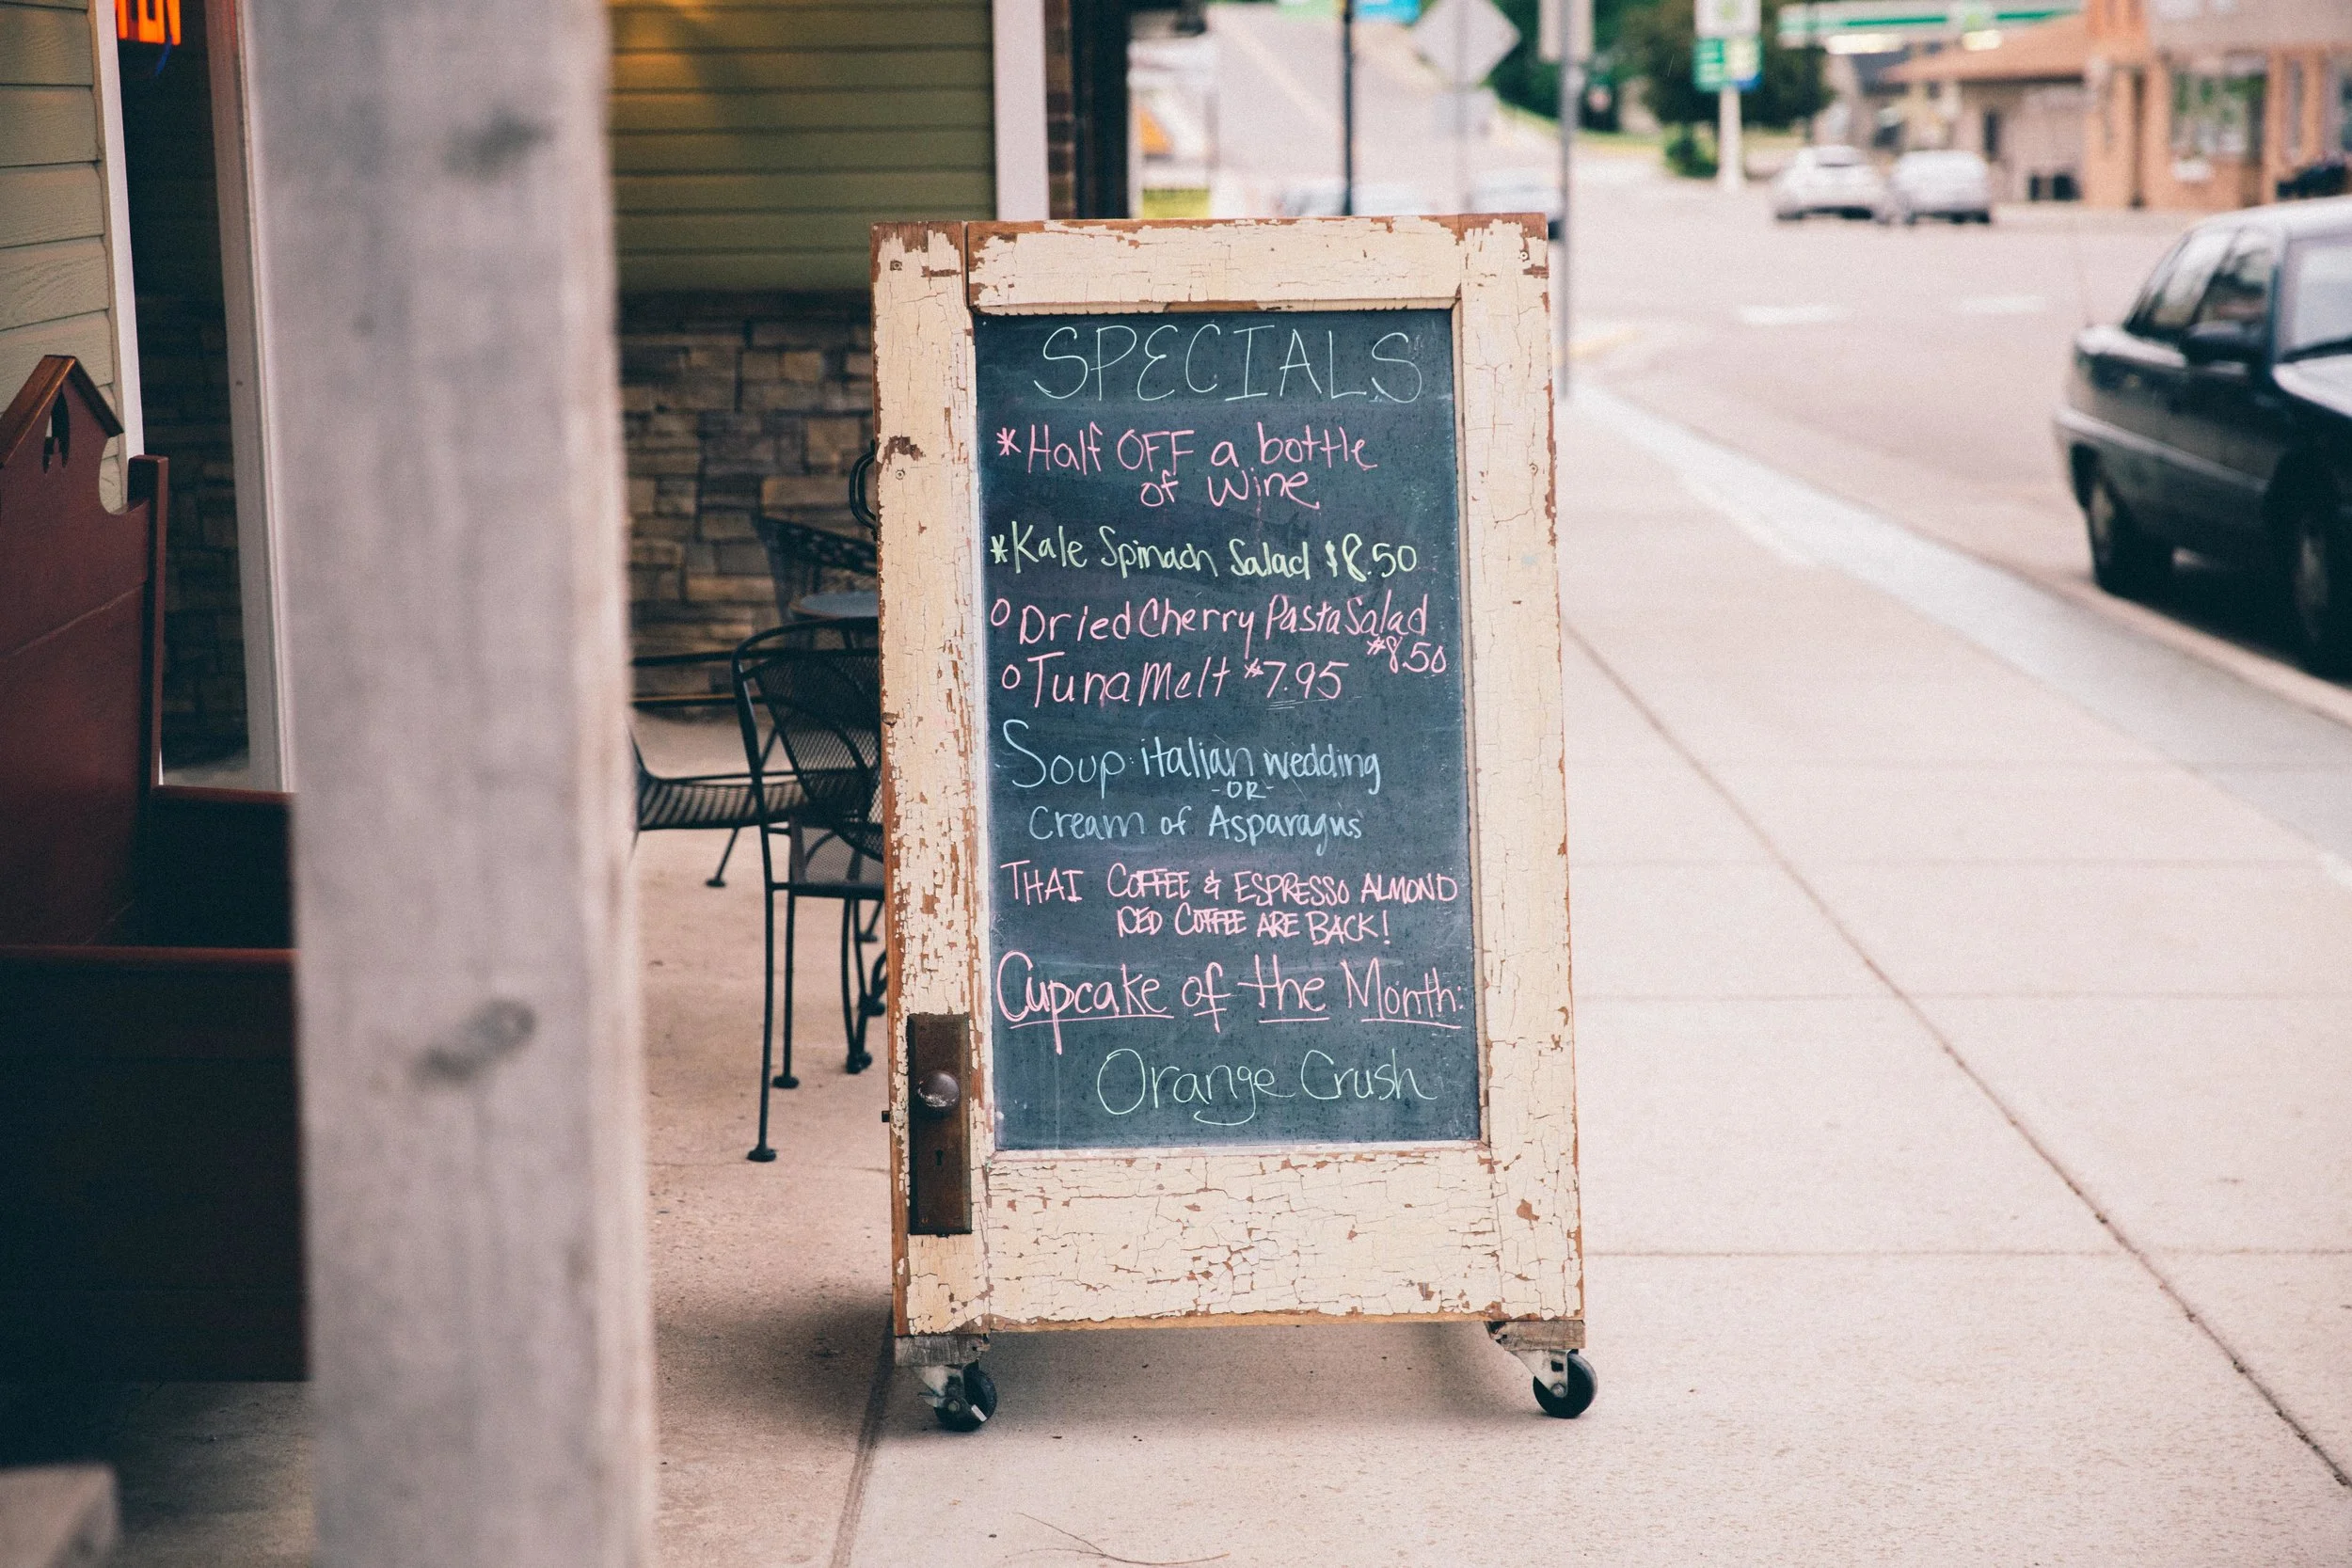 SPECIALS
*Half OFF a bottle
of Wine
*Kale Spinach Salad $8.50
o Dried Cherry Pasta Salad
$8.50
o Tuna Melt $7.95
Soup: italian wedding
-OR-
Cream of Asparagus
THAI COFFEE & ESPRESSO ALMOND
ICED COFFEE ARE BACK!
Cupcake of the Month:
Orange Crush